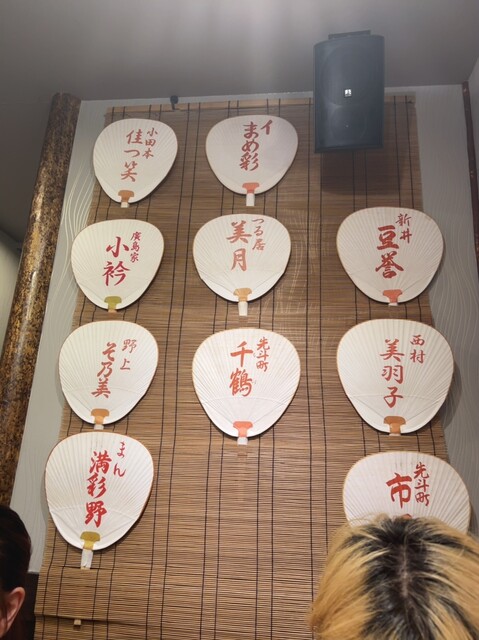 小田本
佳つ笑
イ
まめ彩
廣島家
小衿
つる居
美月
新井
豆誉
野上
そ乃美
先斗町
千鶴
西村
美羽子
まん
満彩野
先斗町
市